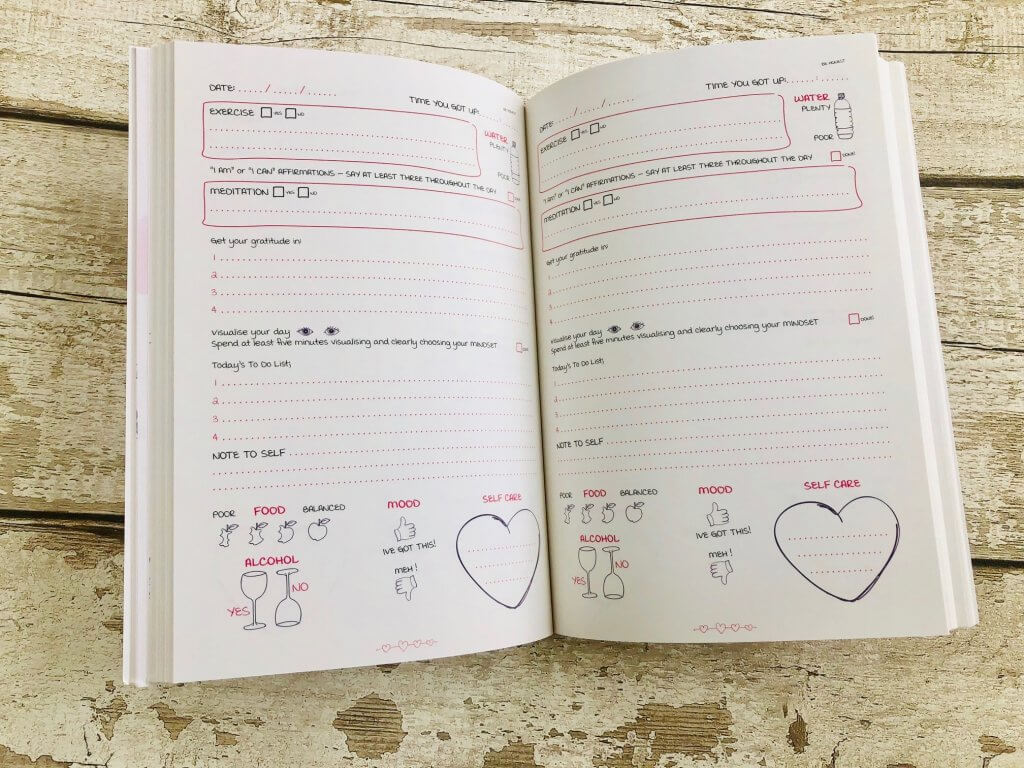 DATE: ...../...../......
TIME YOU GOT UP:
BE HONEST
EXERCISE YES NO
WATER
PLENTY
POOR
"I AM" or "I CAN" AFFIRMATIONS – SAY AT LEAST THREE THROUGHOUT THE DAY DONE!
MEDITATION YES NO
Get your gratitude in:
1
2
3
4
Visualise your day
Spend at least five minutes visualising and clearly choosing your MINDSET DONE!
Today's To Do List;
1
2
3
4
NOTE TO SELF
POOR FOOD BALANCED
MOOD
SELF CARE
IVE GOT THIS!
ALCOHOL
MEH !
YES NO
BE HONEST
DATE: ...../...../......
TIME YOU GOT UP:......:......
EXERCISE YES NO
WATER
PLENTY
POOR
"I AM" or "I CAN" AFFIRMATIONS – SAY AT LEAST THREE THROUGHOUT THE DAY DONE!
MEDITATION YES NO
Get your gratitude in:
1
2
3
4
Visualise your day
Spend at least five minutes visualising and clearly choosing your MINDSET DONE!
Today's To Do List;
1
2
3
4
NOTE TO SELF
POOR FOOD BALANCED
MOOD
SELF CARE
IVE GOT THIS!
ALCOHOL
MEH !
YES NO